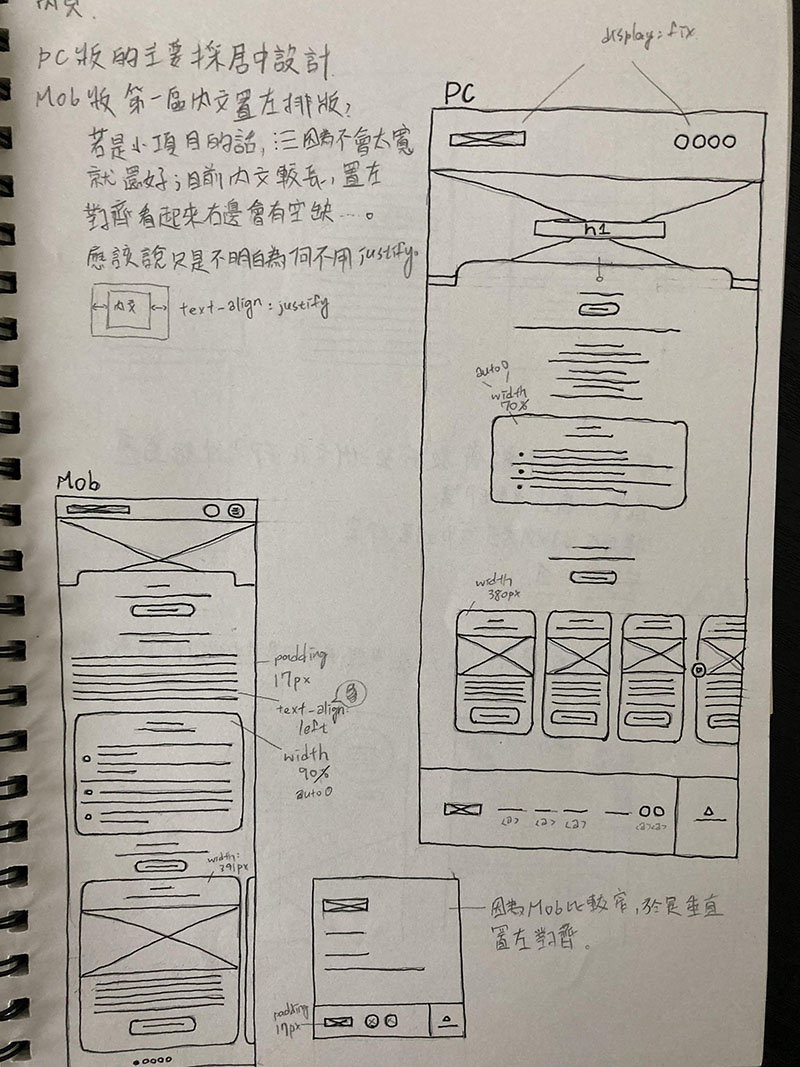 內頁
PC版的主要採居中設計
Mob版第一區內文置左排版?
若是小項目的話,因為不會太寬
就還好;目前內文較長,置左
對齊看起來右邊會有空缺……。
應該說只是不明白為何不用justify。
內文 text-align:justify
display:fix
PC
h1
auto 0
width
70%
width
380px
<a> <a> <a> <a><a>
Mob
padding
17px
text-align:
left
width
90%
auto 0
width:
391px
因為Mob比較窄,於是垂直
置左對齊。
padding
17px